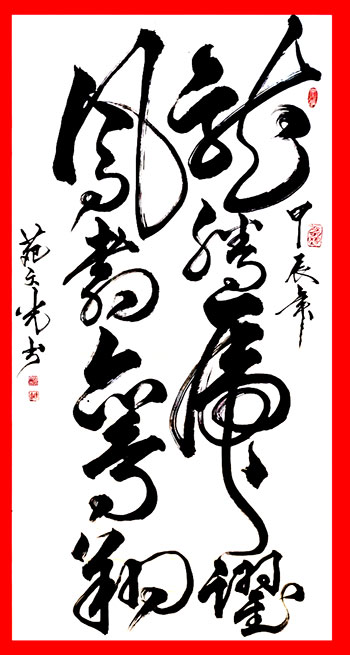 甲辰年
龍騰虎躍
鳳翥鸞翔
苑文光书